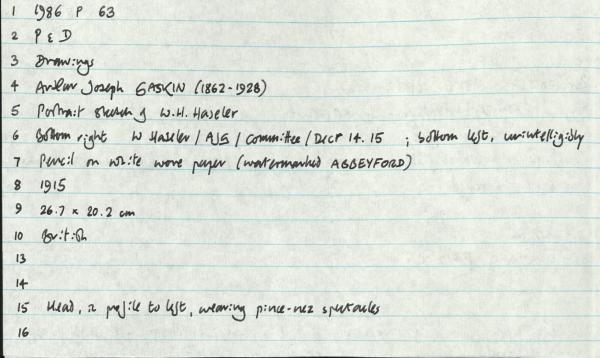 1 1986 P 63
2 P & D
3 Drawings
4 Arthur Joseph GASKIN (1862-1928)
5 Portrait sketch of W.H. Haseler
6 Bottom right W Haseler / AJG / Committee / Dec 14. 15 ; bottom left, unintelligibly
7 Pencil on white wove paper (watermarked ABBEYFORD)
8 1915
9 26.7 x 20.2 cm
10 British
13
14
15 Head, in profile to left, wearing pince-nez spectacles
16